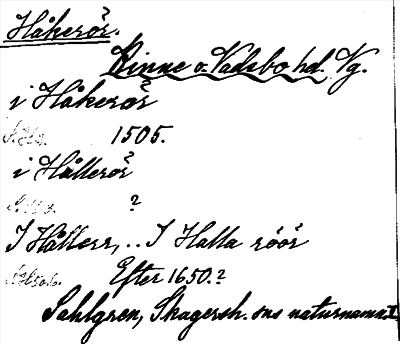 Håkerör.
Kinne o. Vadsbo hd. Vg.
i Håkerör
1505.
i Hålleröř
?
I Hållerr, .. I Halla röör
Efter 1650.?
Sahlgren, Skagersh. sns naturnamn.